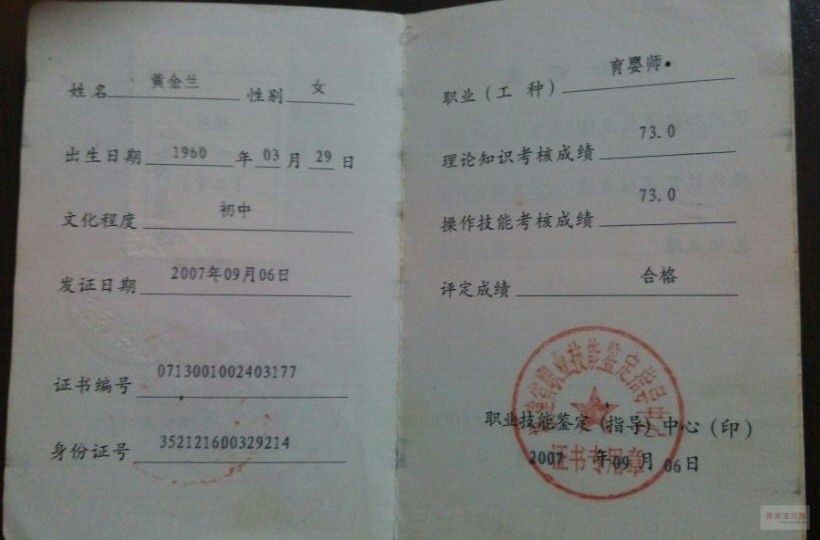 姓名 黄金兰 性别 女
出生日期 1960 年 03 月 29 日
文化程度 初中
发证日期 2007年09月06日
证书编号 0713001002403177
身份证号 352121600329214
职业（工 种） 育婴师
理论知识考核成绩 73.0
操作技能考核成绩 73.0
评定成绩 合格
省职业技能鉴定指导中心
职业技能鉴定（指导）中心（印）
证书专用章
2007 年 09 月 06 日